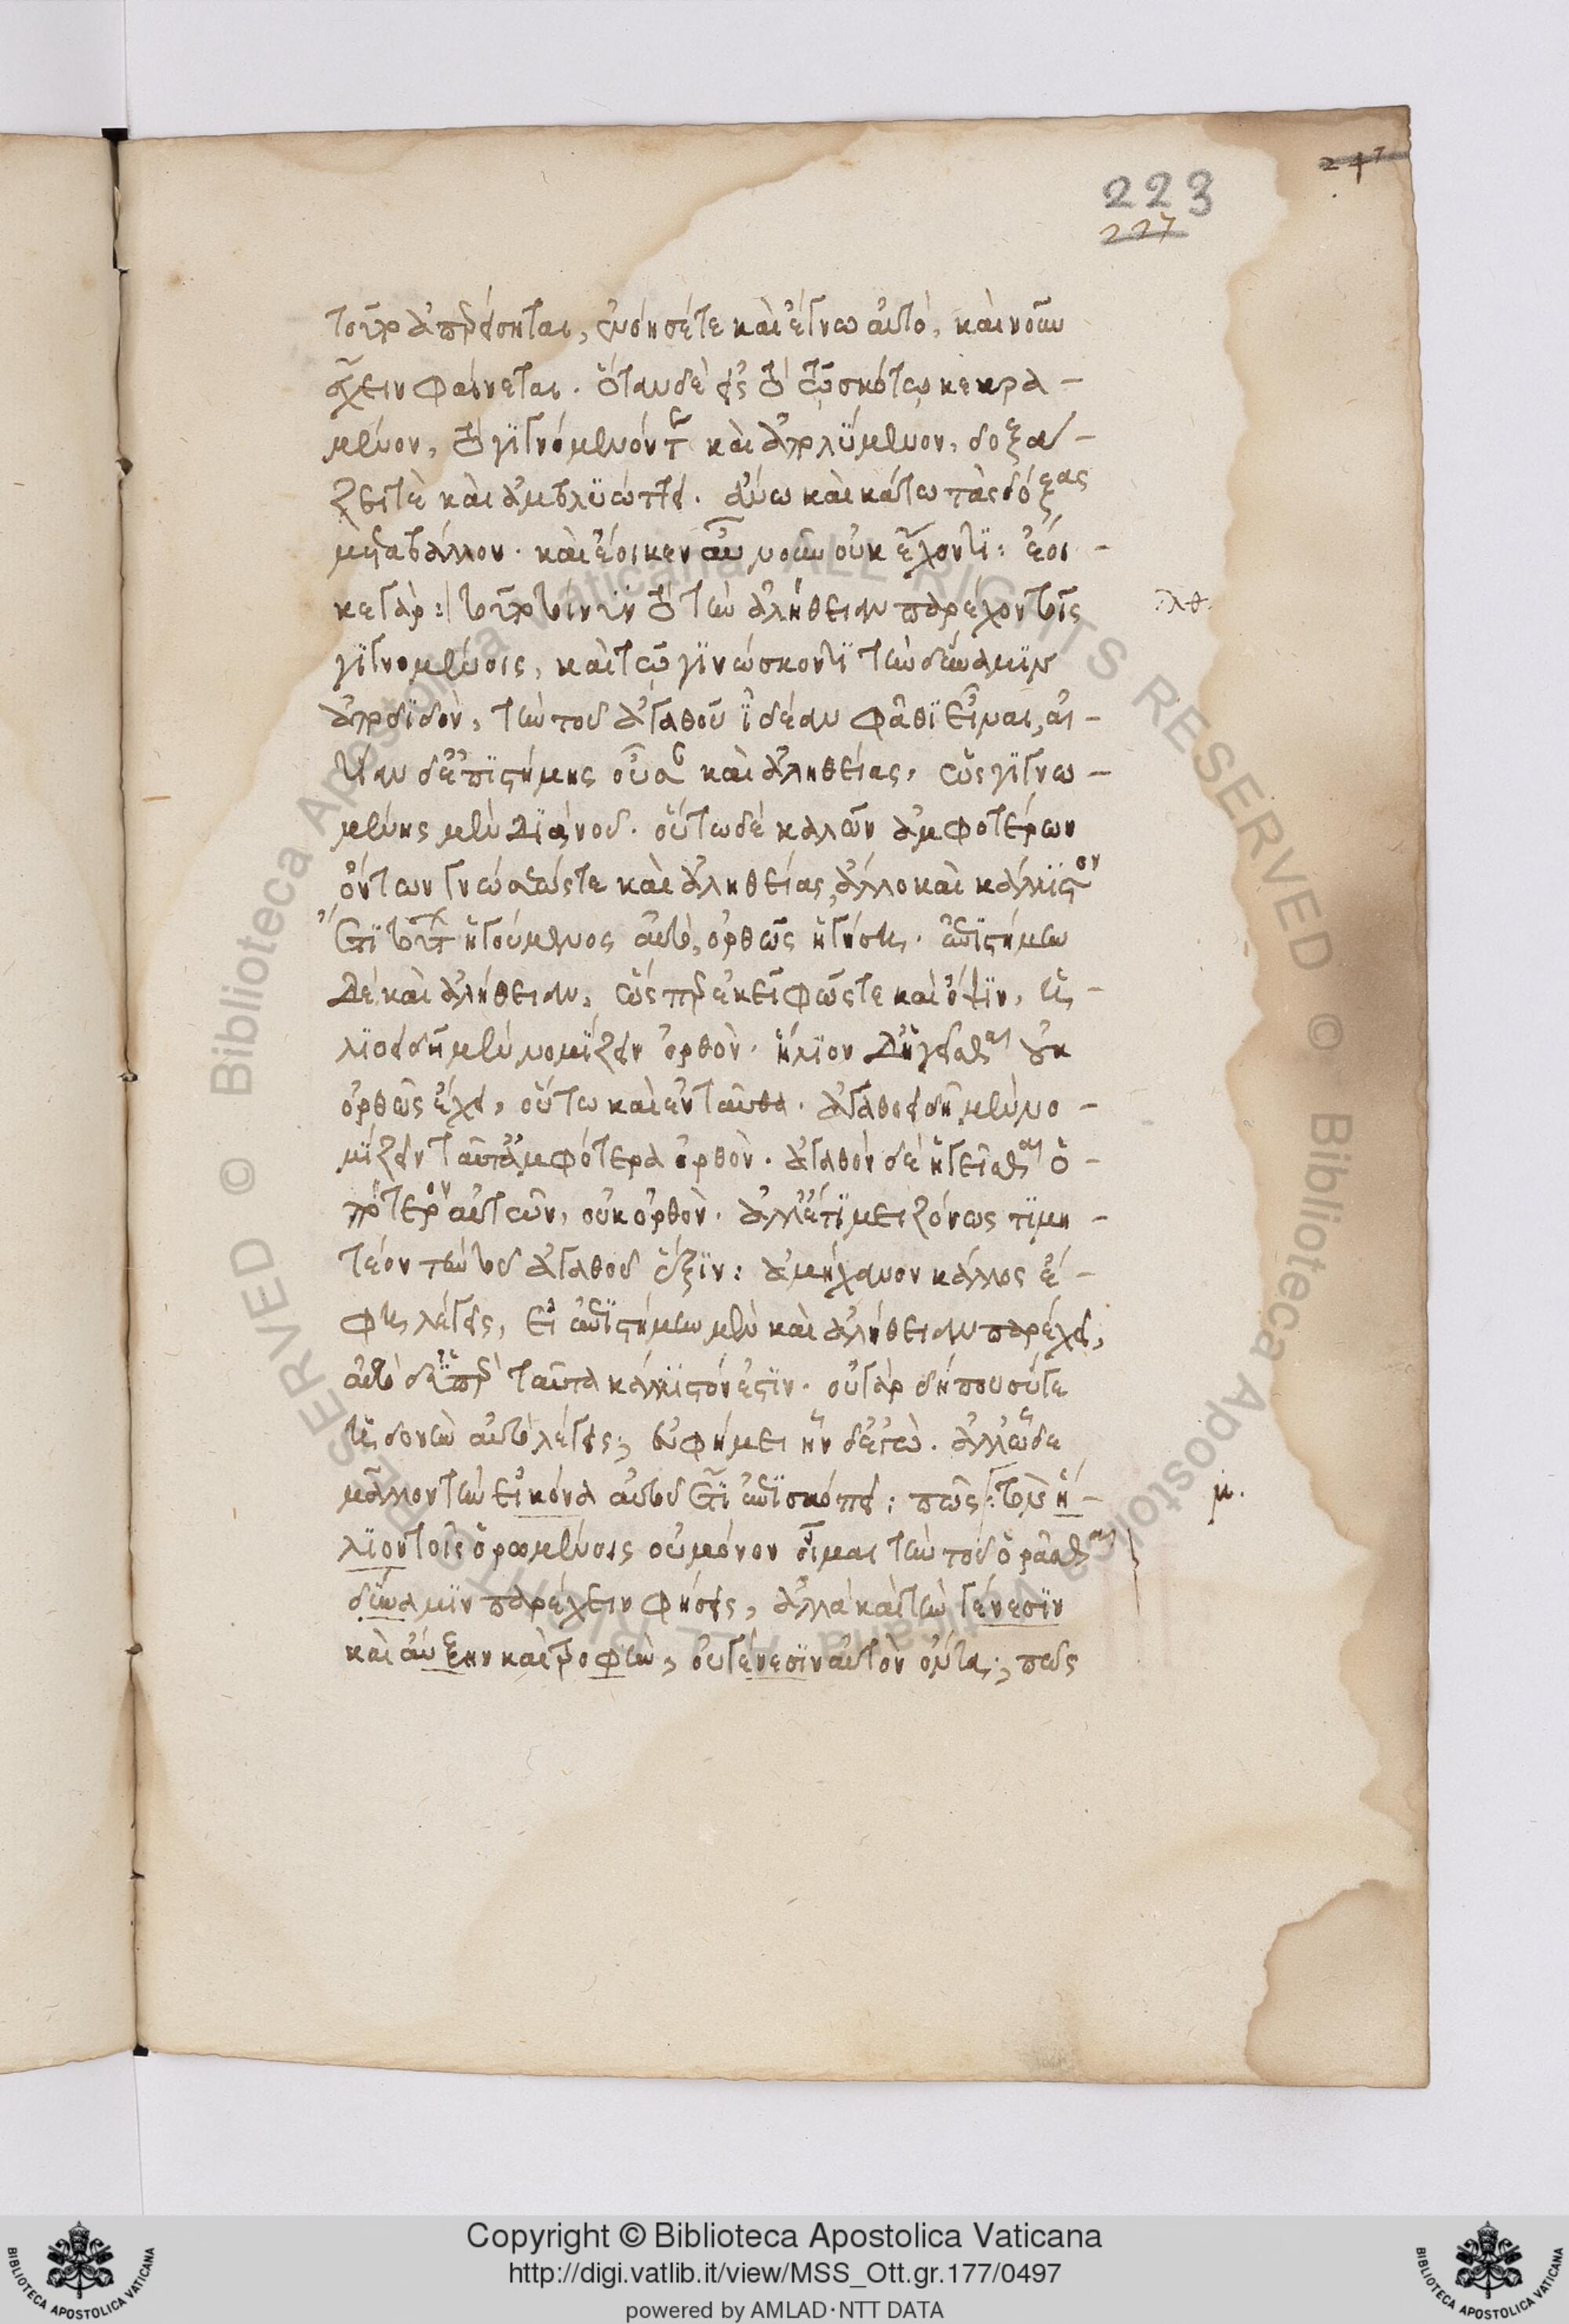 223
227
τοῦτο ἀπερείσηται, ἐνόησέ τε καὶ ἔγνω αὐτὸ, καὶ νοῦν
ἔχειν φαίνεται. ὅταν δὲ εἰς τὸ τῷ σκότῳ κεκρα-
μένον, τὸ γιγνόμενόν τε καὶ ἀπολλύμενον, δοξά-
ζει τὲ καὶ ἀμβλυώττει. ἄνω καὶ κάτω τὰς δόξας
μεταβάλλον. καὶ ἔοικεν αὖ νοῦν οὐκ ἔχοντι: ἔοι-
κε γάρ: τοῦτο τοίνυν τὸ τὴν ἀλήθειαν παρέχον τοῖς
λθ.
γιγνομένοις, καὶ τῷ γινώσκοντι τὴν δύναμιν
ἀποδιδὸν, τὴν τοῦ ἀγαθοῦ ἰδέαν φάθι εἶναι, αἰ-
τίαν δ' ἐπιστήμης οὖσαν καὶ ἀληθείας, ὡς γιγνω-
μένης μὲν διὰ νοῦ. οὕτω δὲ καλῶν ἀμφοτέρων
ὄντων γνώσεώς τε καὶ ἀληθείας, ἄλλο καὶ κάλλιον
ἔτι τούτων ἡγούμενος αὐτὸ, ὀρθῶς ἡγήσῃ. ἐπιστήμην
δὲ καὶ ἀλήθειαν, ὥσπερ ἐκεῖ φῶς τε καὶ ὄψιν, ἡ-
λιοειδῆ μὲν νομίζειν ὀρθὸν. ἥλιον δ' ἡγεῖσθαι οὐκ
ὀρθῶς ἔχει, οὕτω καὶ ἐνταῦθα. ἀγαθοειδῆ μὲν νο-
μίζειν ταῦτ' ἀμφότερα ὀρθὸν. ἀγαθὸν δὲ ἡγεῖσθαι ὁ-
πότερον αὐτῶν, οὐκ ὀρθὸν. ἀλλ' ἔτι μειζόνως τιμη-
τέον τὴν τοῦ ἀγαθοῦ ἕξιν: ἀμήχανον κάλλος ἔ-
φη λέγεις, εἰ ἐπιστήμην μὲν καὶ ἀλήθειαν παρέχει,
αὐτὸ δ' ὑπὲρ ταῦτα κάλλιστόν ἐστιν. οὐ γὰρ δήπου σύ γε
ἡδονὴν αὐτὸ λέγεις; εὐφήμει ἦν δ' ἐγὼ. ἀλλ' ὧδε
μᾶλλον τὴν εἰκόνα αὐτοῦ ἔτι ἐπισκόπει: πῶς: τὸν ἥ-
μ.
λιον τοῖς ὁρωμένοις οὐ μόνον οἶμαι τὴν τοῦ ὁρᾶσθαι
δύναμιν παρέχειν φήσεις, ἀλλὰ καὶ τὴν γένεσιν
καὶ αὔξην καὶ τροφὴν, οὐ γένεσιν αὐτὸν ὄντα; πῶς
Copyright © Biblioteca Apostolica Vaticana
http://digi.vatlib.it/view/MSS_Ott.gr.177/0497
powered by AMLAD·NTT DATA